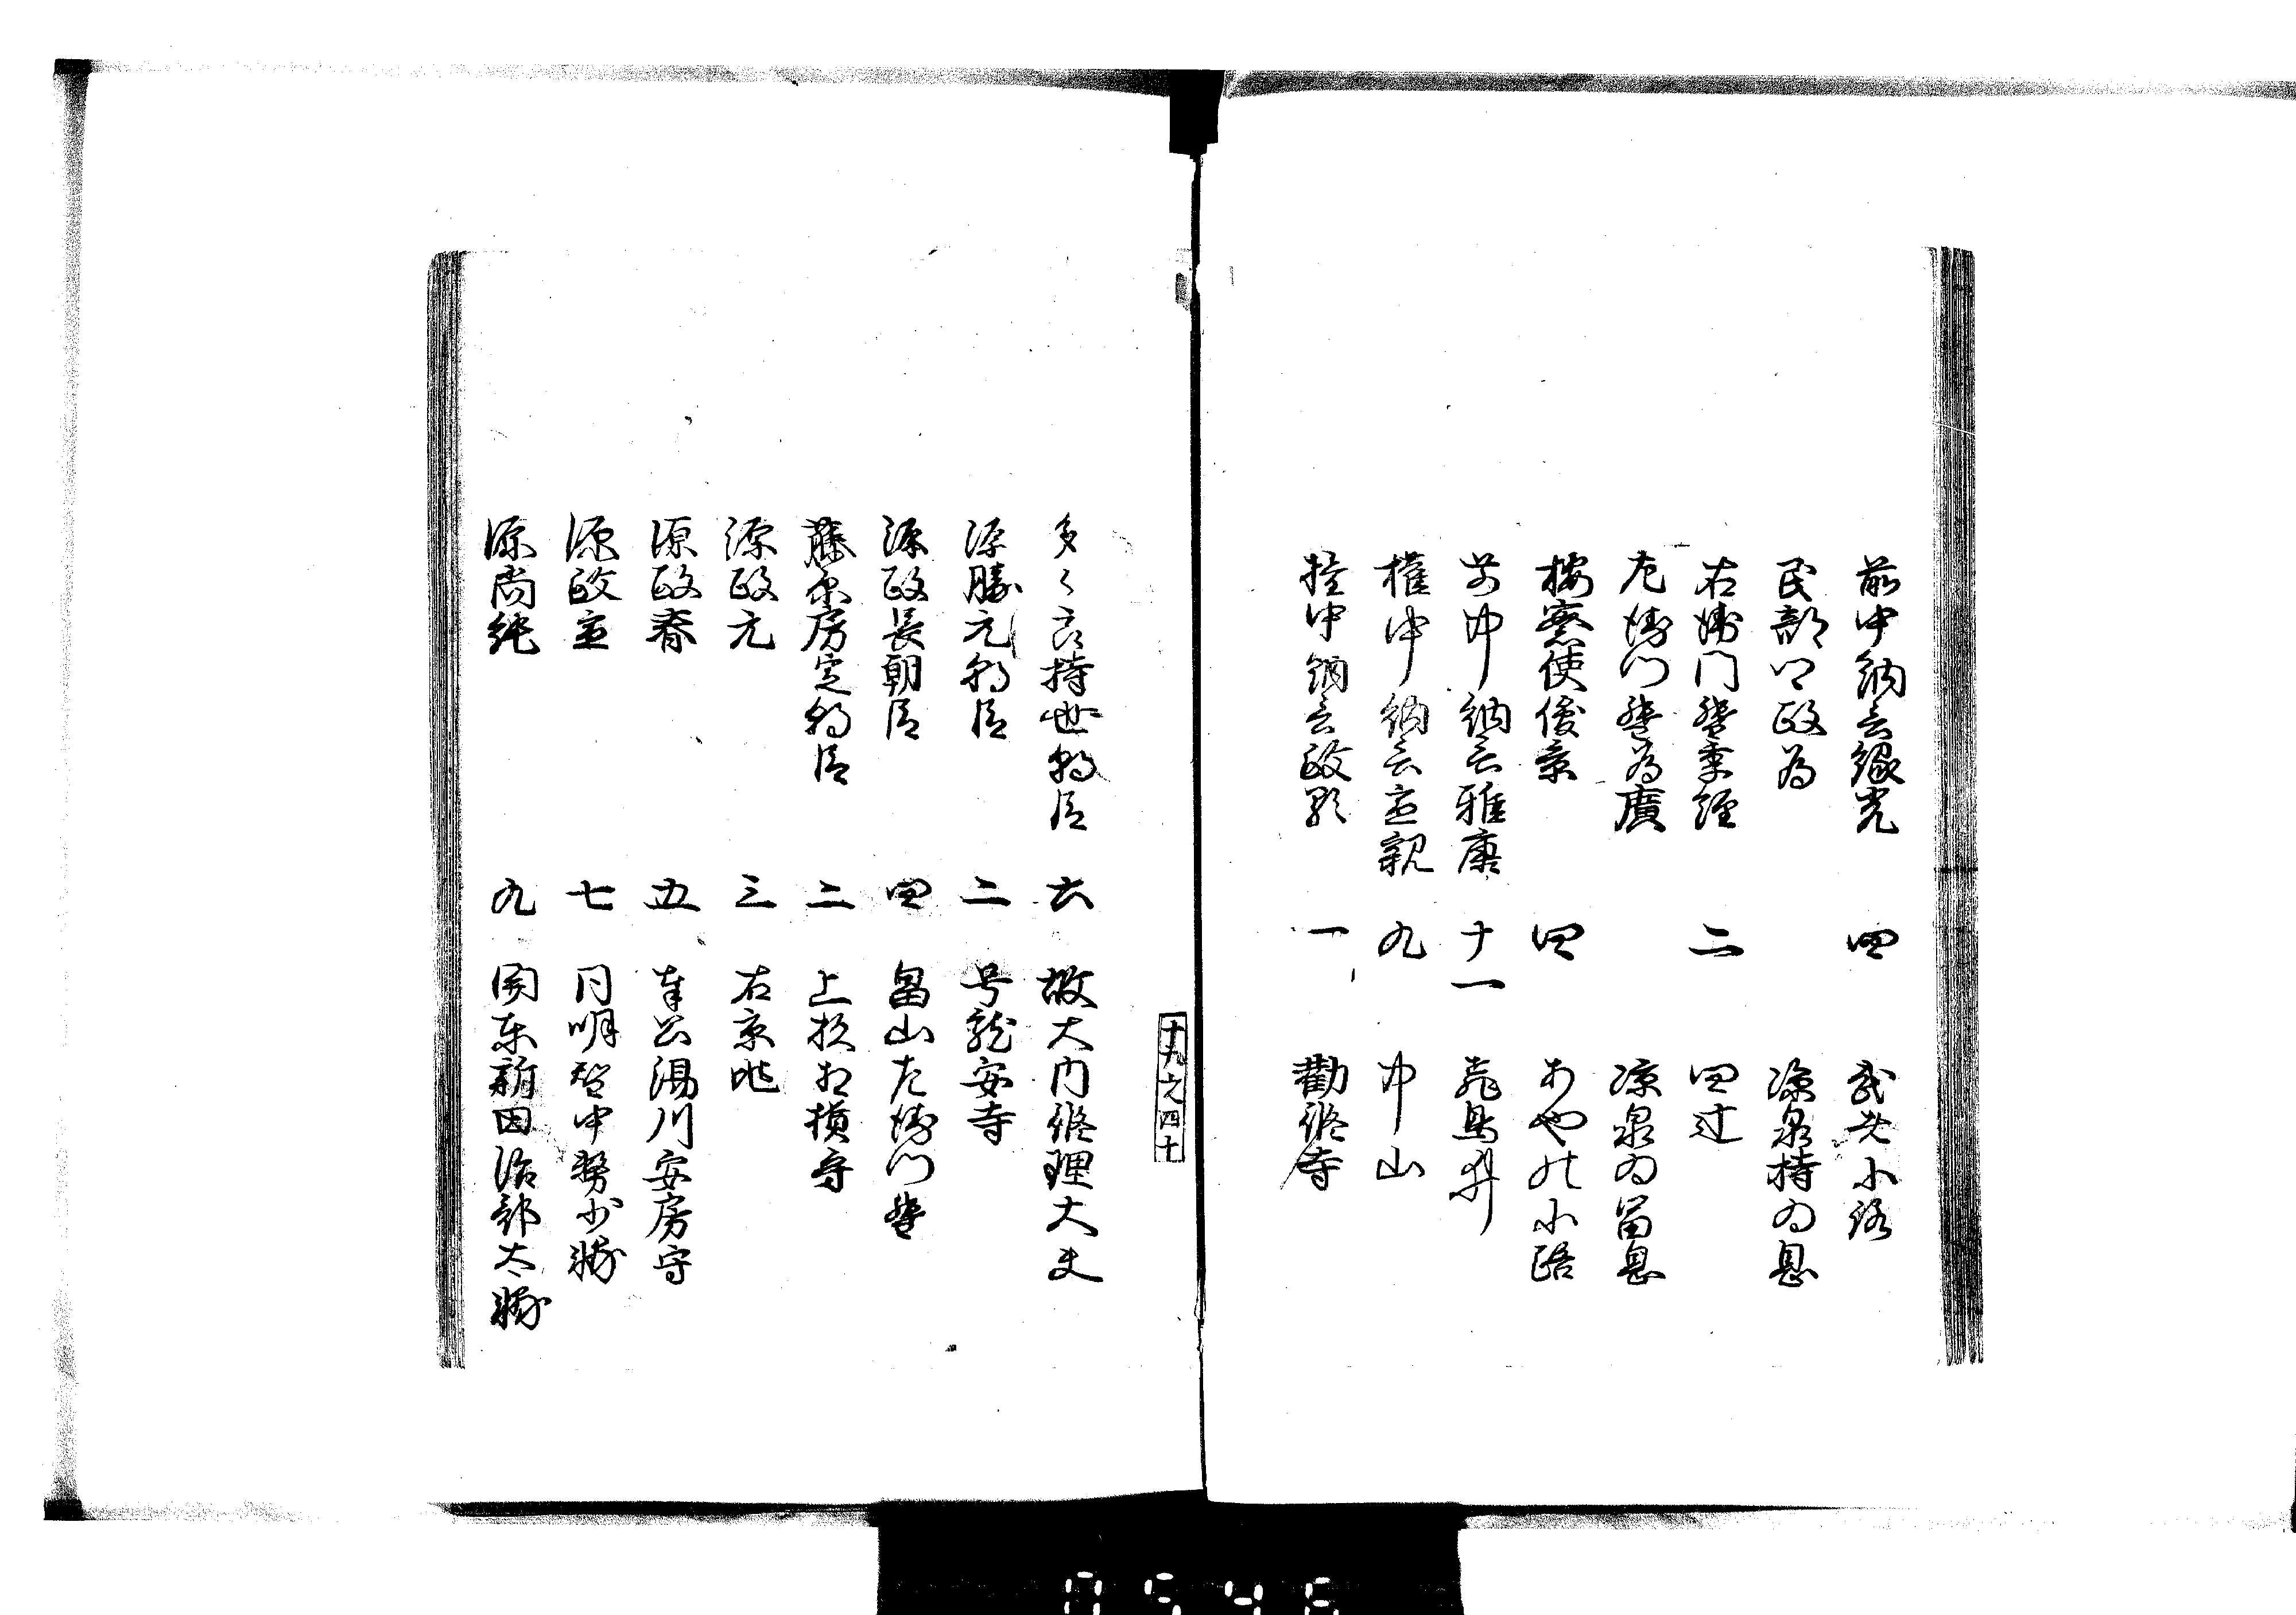 前中納言縁光 四 武者小路
民部卿政為 冷泉持為息
右衛門督季経 二 四辻
左衛門督為廣 冷泉為富息
按察使俊量 四 あや乃小路
前中納言雅康 十一 飛鳥井
権中納言宣親 九 中山
権中納言政顕 一 勧修寺
十九之四十
多々良持世朝臣 六 故大内修理大夫
源勝元朝臣 二 号龍安寺
源政長朝臣 四 畠山左衛門督
藤原房定朝臣 二 上杉相模守
源政元 三 右京兆
源政春 五 奉公湯川安房守
源政宣 七 同明智中務少輔
源尚純 九 関東新田治部大輔
0546